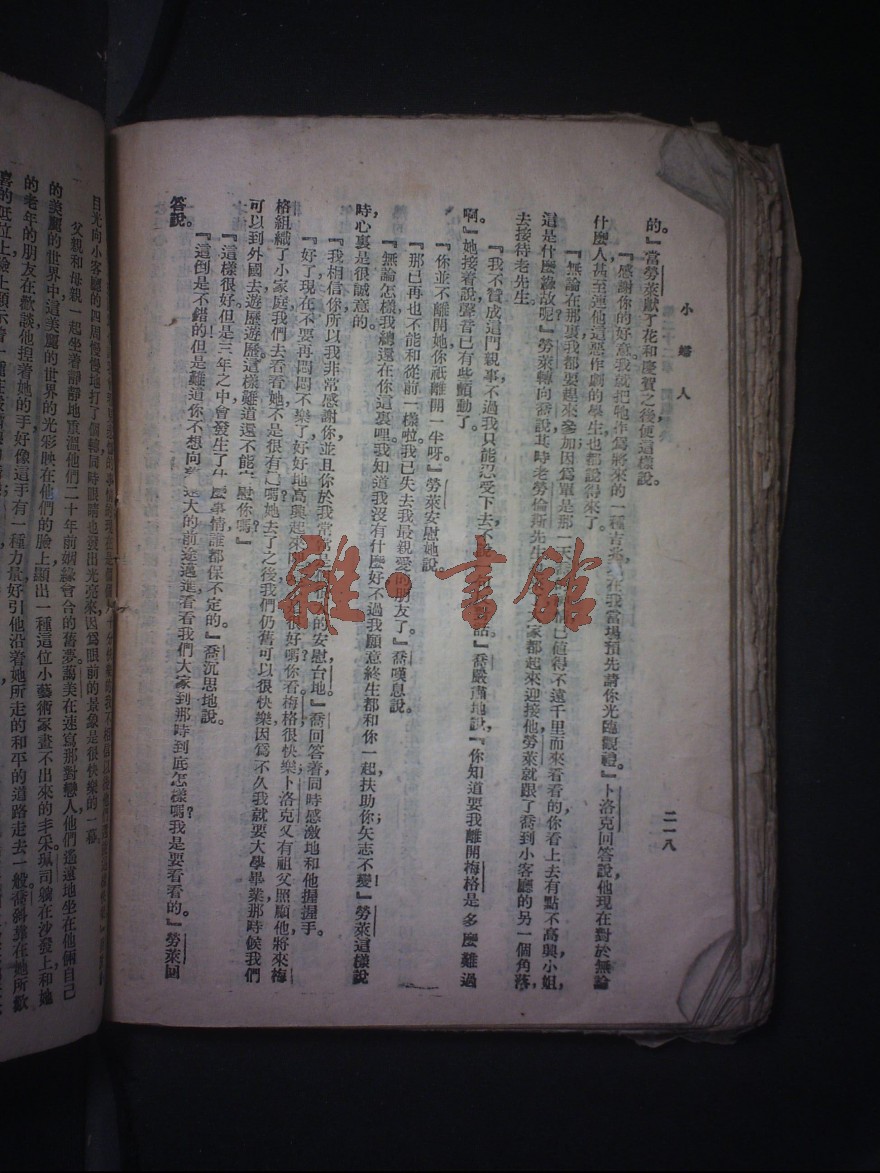 小婦人
二一八
的。』當勞萊獻了花和慶賀之後便這樣說。
『感謝你的好意我就把牠作為將來的一種吉兆在我當場預先請你光臨觀禮。』卜洛克回答說他現在對於無論
什麼人甚至連他這惡作劇的學生也都說得來了。
『無論在那裏我都要趕來參加因為單是那一天 已值得不遠千里而來看看的你看上去有點不高興小姐,
這是什麼緣故呢』勞萊轉向喬說其時老勞倫斯先生 大家都起來迎接他勞萊就跟了喬到小客廳的另一個角落,
去接待老先生
『我不贊成這門親事不過我只能忍受下去不 話』喬嚴肅地說,『你知道要我離開梅格是多麼難過
啊。』她接着說聲音已有些顫動了。
『你並不離開她你祇離開一半呀。』勞萊安慰她說。
『那已再也不能和從前一樣啦我已失去我最親愛的朋友了。』喬嘆息說。
『無論怎樣我總還在你這裏哩我知道我沒有什麼好不過我願意終生都和你一起扶助你矢志不變!』勞萊這樣說
時心裏是很誠意的。
『我相信你所以我非常感謝你並且你於我常常是 的安慰台地。』喬回答着同時感激地和他握握手。
『好了現在不要再悶悶不樂了好好地高興起來 很好嗎你看梅格很快樂;卜洛克又有祖父照顧他將來梅
格組織了小家庭我們去看看她不是很有 嗎?她去了之後我們仍舊可以很快樂因為不久我就要大學畢業那時候我們
可以到外國去遊歷遊歷這樣難道還不能 慰你嗎?』
『這樣很好但是三年之中會發生了什麼事情誰都保不定的。』喬沉思地說。
『這倒是不錯的但是難道你不想向着 大的前途邁進看看我們大家到那時到底怎樣嗎?我是要看看的。』勞萊回
答說。
目光向小客廳的四周慢慢地打了個轉,同時眼睛也發出光亮來因為眼前的景象是很快樂的一幕。
父親和母親一起坐着靜靜地重溫他們二十年前姻緣會合的舊夢藹美在速寫那對戀人他們遙遠地坐在他倆自己
的美麗的世界中,這美麗的世界的光彩映在他們的臉上顯出一種這位小藝術家畫不出來的丰采。佩司躺在沙發上和她
的老年的朋友在歡談他捏着她的手好像這手有一種力量好引他沿着她所走的和平的道路走去一般喬斜靠在她所歡